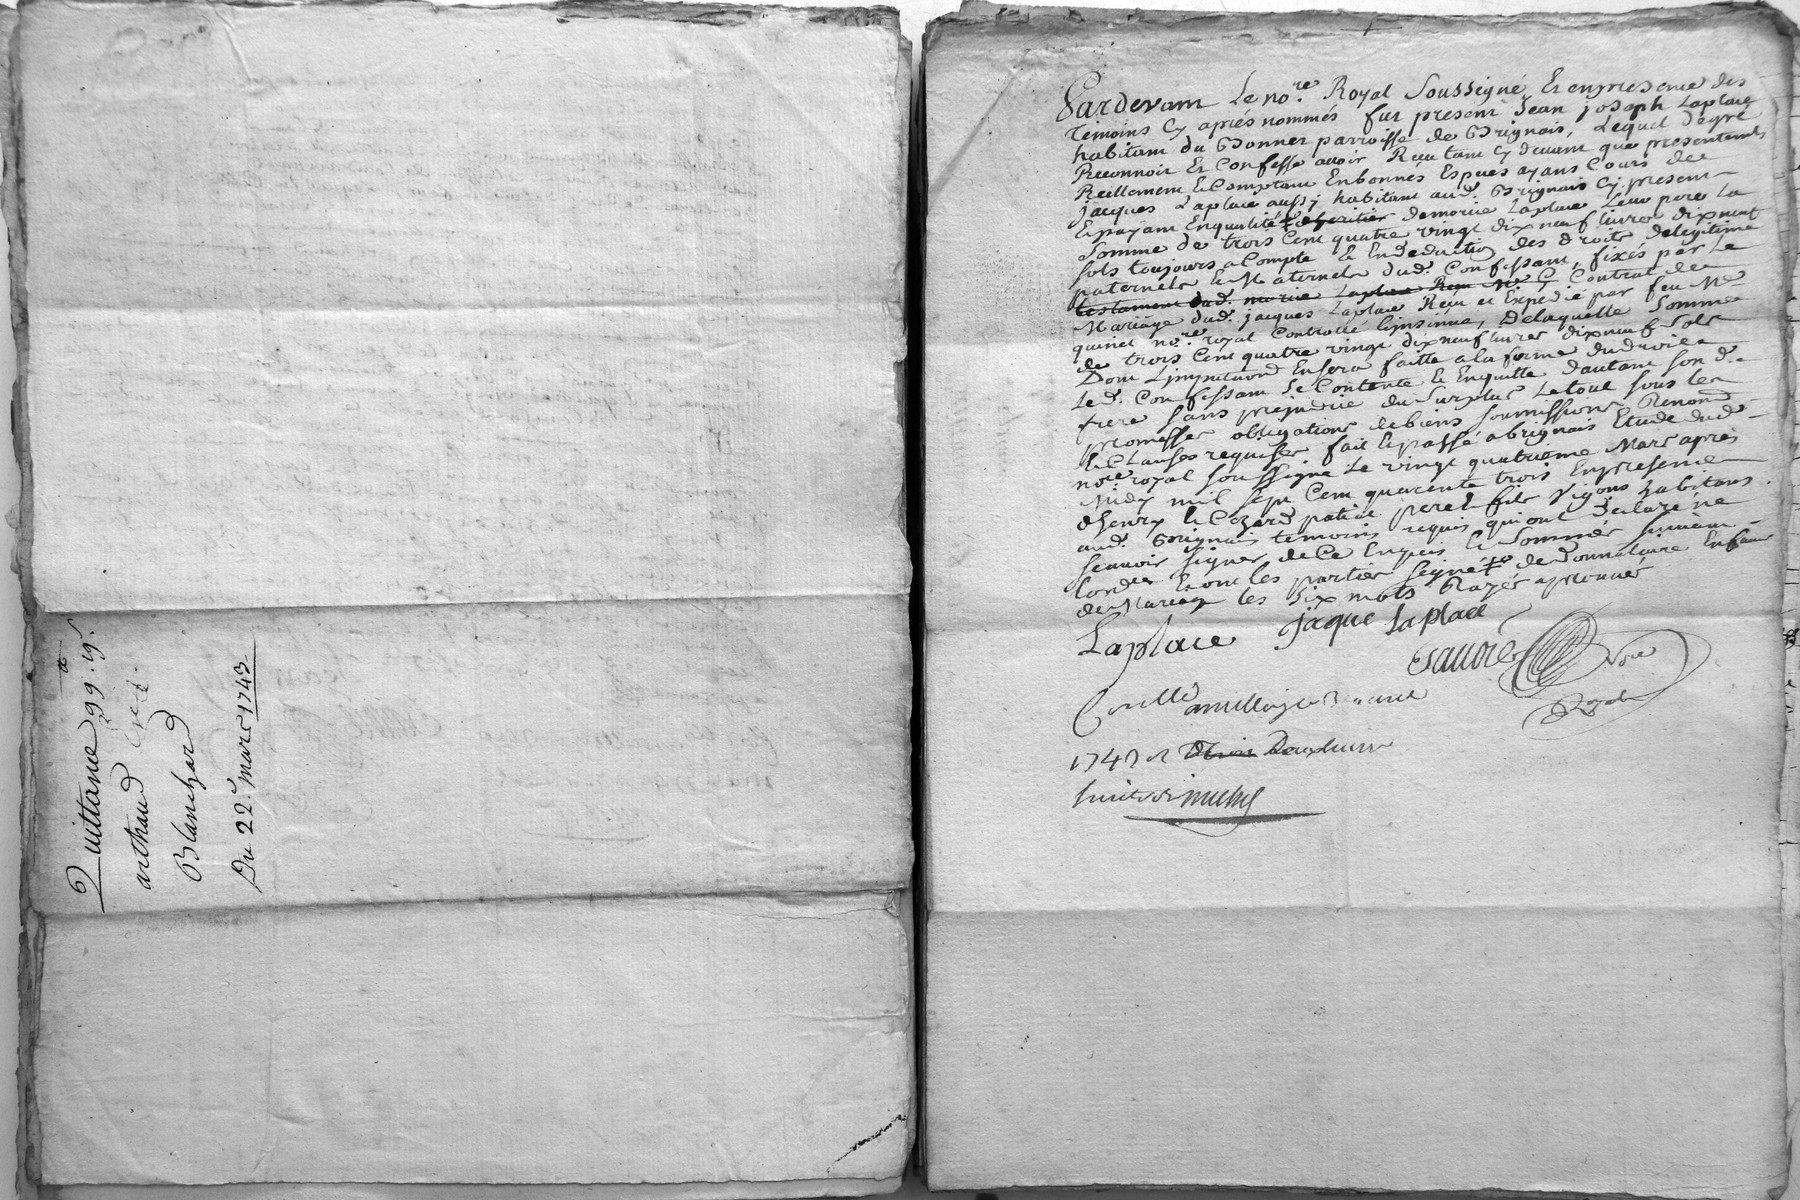 Quittance 99 ₶ 19 s
arthaud
Blanchard
Du 22e mars 1743
Pardevant Le no.re Royal Soussigné, Et en presence des
temoins Cy aprés nommés fut present Jean joseph Laplace
habitant du Bonnet parroisse de Brignais, Lequel de gré
Reconnoit Et Confesse avoir Reçu tant Cy devant que presentement
Reellement & Comptant En bonnes Especes ayans Cours de
jacques Laplace aussy habitant aud. Brignais Cy present
Et payant En qualité d'heritier de Laplace Leur pere La
Somme de trois Cent quatre vingt dix neuf livres dix neuf
sols toujours a Compte & En Deduction des droits de legitime
paternels & Maternels dud. Confessant, fixés par Le
testament dud. Laplace Reçu Me Contrat de
Mariage dud. jacques Laplace Reçu et Expedié par feu Me
quinet no.re royal Controllé & jnsinué, De laquelle Somme
de trois Cent quatre vingt dix neuf livres dix neuf Sols
Dont L'jmputaon En sera faitte a la forme du droit
Led. Confessant Se Contente & En quitte d'autant son d.
frere sans prejudice du Surplus Le tout sous les
promesses obligations de biens soumissions Renonč
& Clauses requises, fait & passé a brignais Etude dud.
no.re royal soussigné Le vingt quatrieme Mars aprés
Midy mil sept Cent quarente trois En presence
d'henry & patin pere & fils Vignons habitans
aud. Brignais temoins requis qui ont Declaré ne
scavoir signer de Ce Enquis & Sommés suivant
lord.ce & ont les parties signé de donnataire En
de Mariage les dix mots Rayés aprouvés
Laplace jaque La place
Nore
Royal
Controllé
1743 Rt Deux livres
huit sols Michel